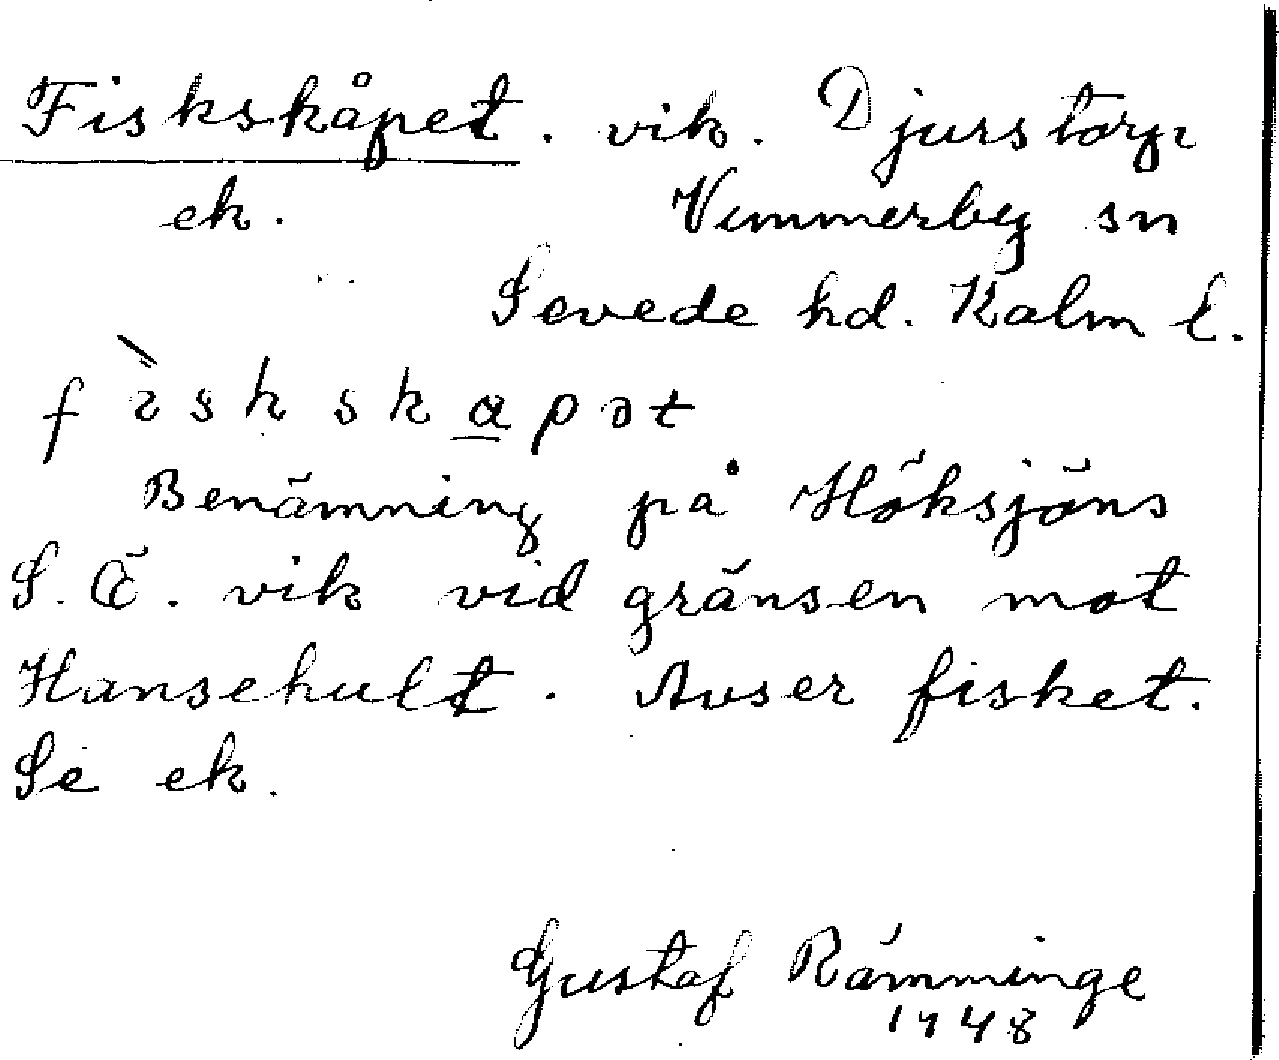 Fiskskåpet. vik. Djurstorp
ek. Vimmerby sn
Sevede hd. Kalm l.
fìskskapət
Benämning på Höksjöns
S. Ö. vik vid gränsen mot
Hansehult. Avser fisket.
Se ek.
Gustaf Rämminge
1948